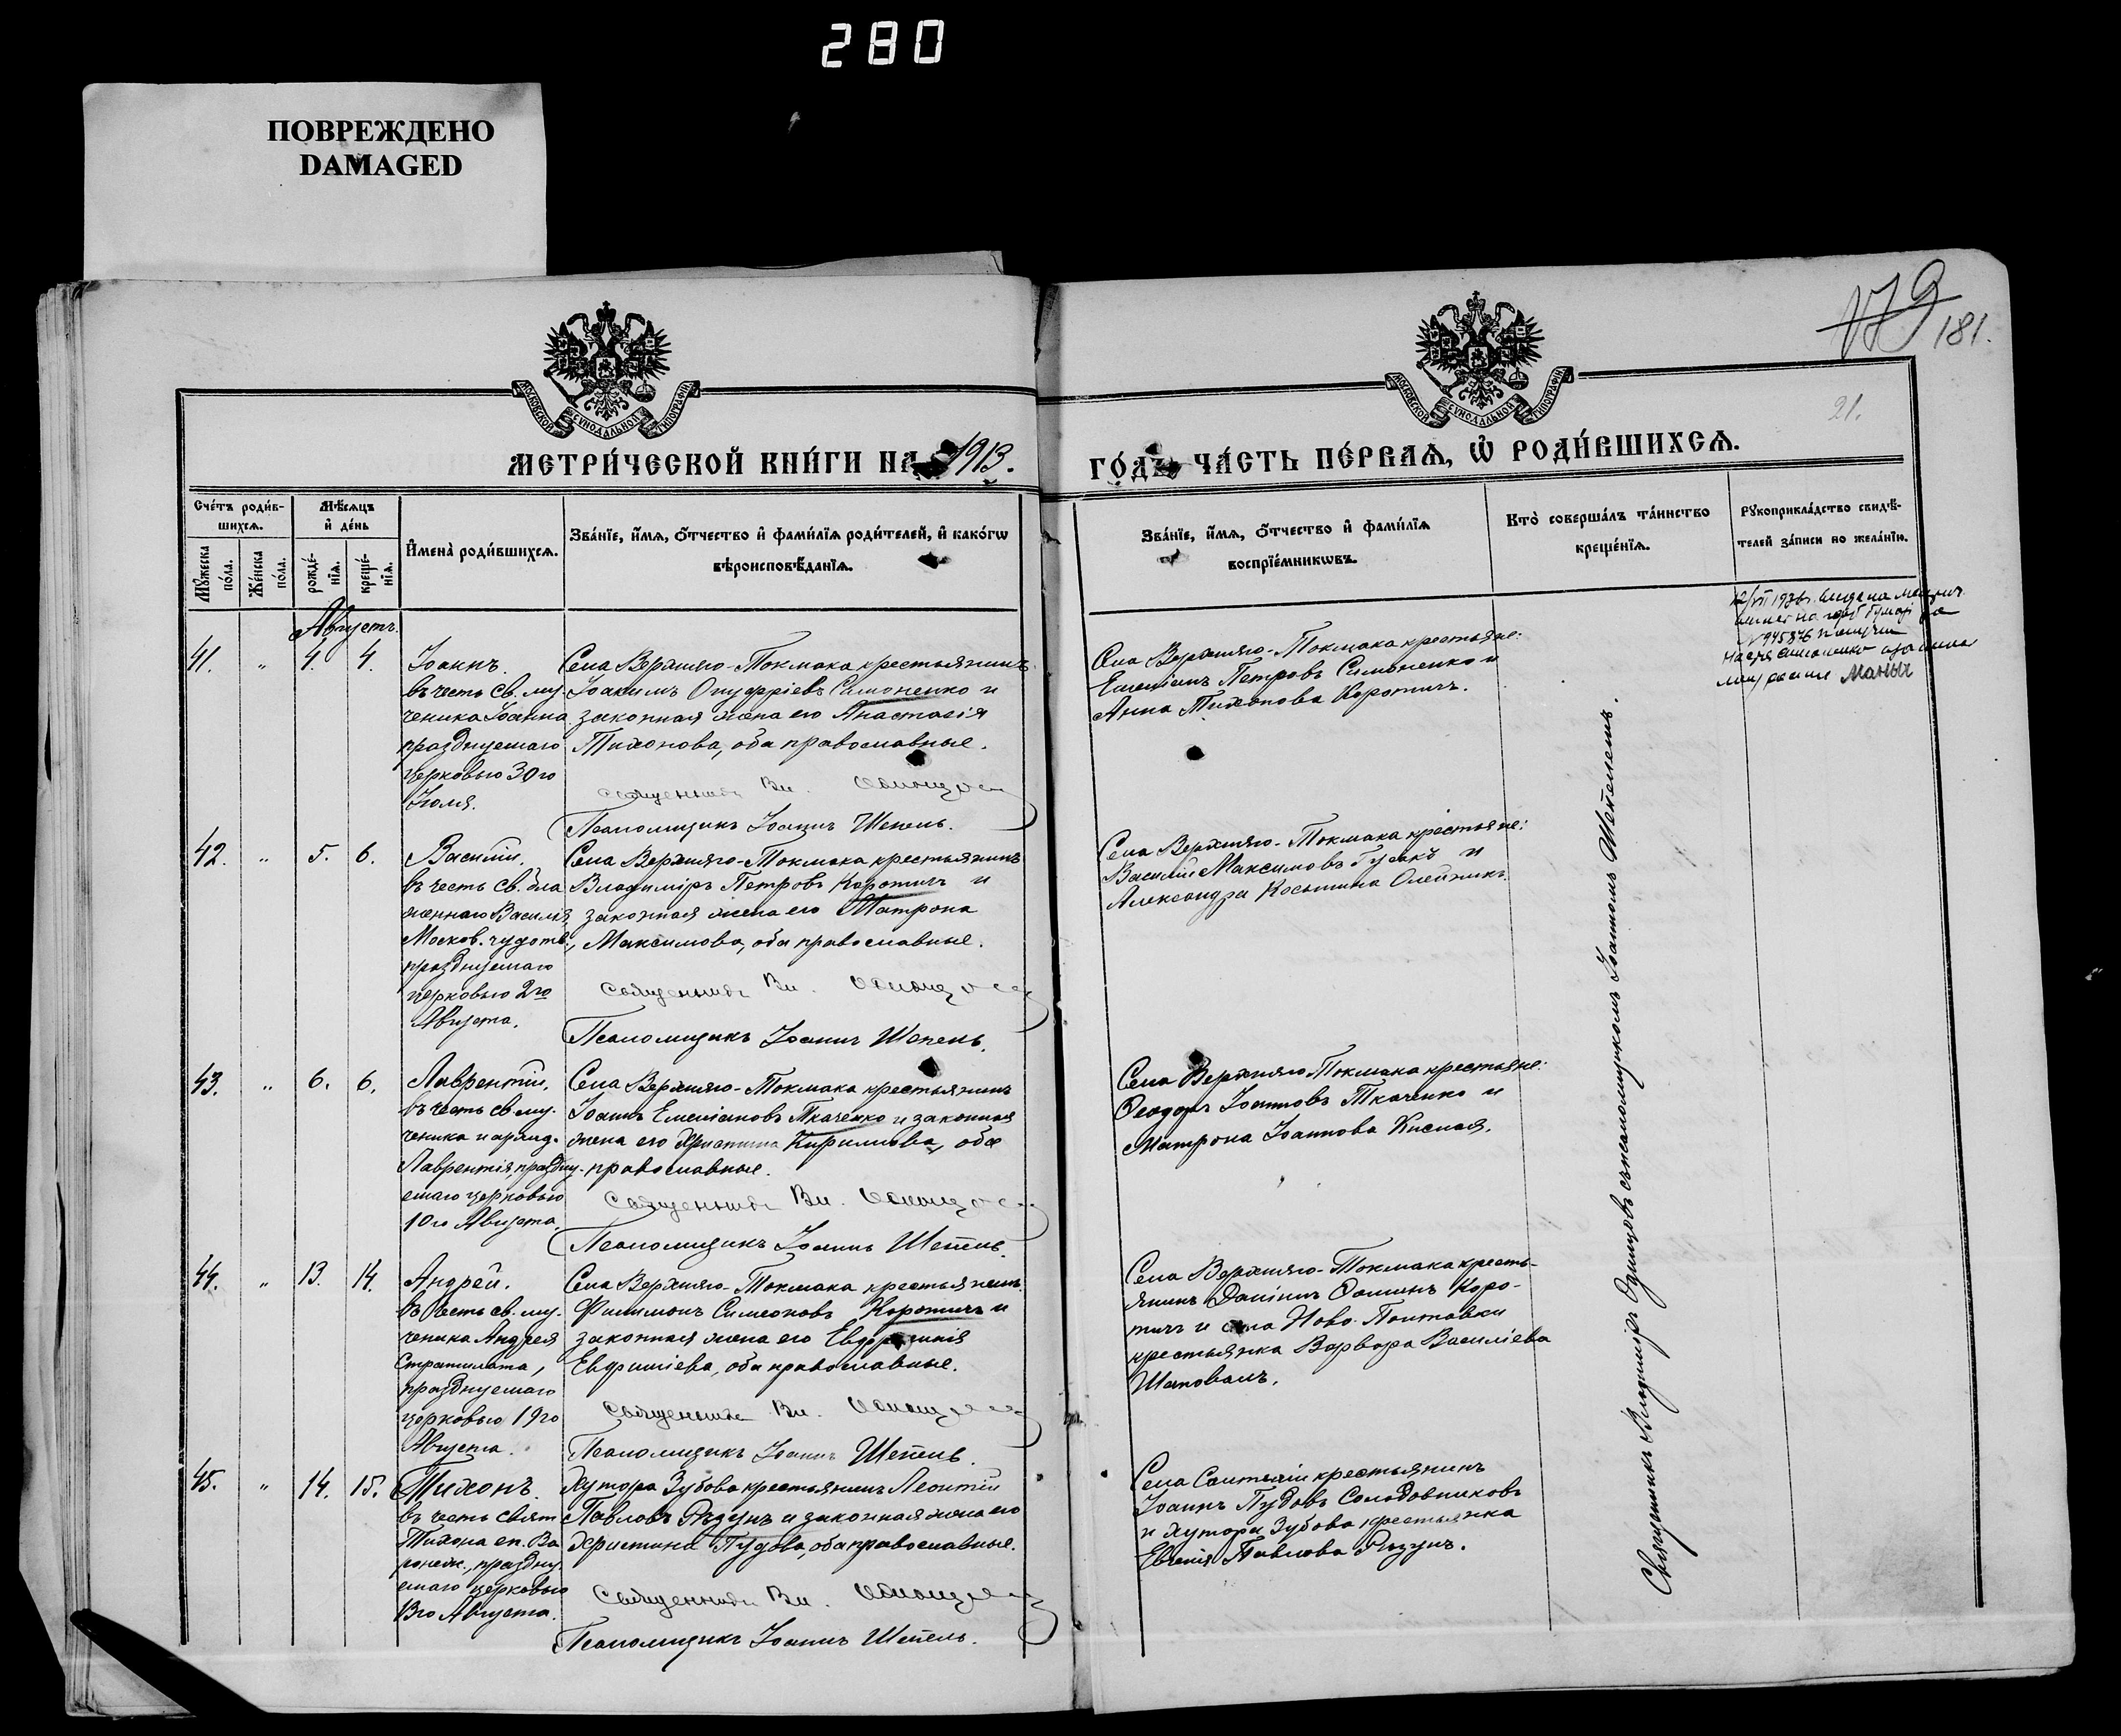 280
ПОВРЕЖДЕНО
DAMAGED
179
181.
21.
МОСКОВСКОЙ СѴНОДАЛЬНОЙ ТИПОГРАФІИ
МОСКОВСКОЙ СѴНОДАЛЬНОЙ ТИПОГРАФІИ
МЕТРИ́ЧЕСКОЙ КНИ́ГИ НА 1913.
ГО́ДЪ ЧА́СТЬ ПЕ́РВАѦ, Ѽ РОДИ́ВШИХСѦ.
Сче́тъ роди́в-
шихсѧ.
Мꙋ́жеска по́ла.
Же́нска по́ла.
Мѣ́сѧцъ
и҆ де́нь
рожде́-
нїѧ.
креще́-
нїѧ.
И҆мена̀ роди́вшихсѧ.
Зва́нїе, и҆́мѧ, ѻ҆́тчество и҆ фами́лїѧ роди́телей, и҆ како́гѡ
вѣроисповѣ́данїѧ.
Зва́нїе, и҆́мѧ, ѻ҆́тчество и҆ фами́лїѧ
воспрїе́мникѡвъ.
Кто̀ соверша́лъ та́инство
креще́нїѧ.
Рꙋкоприкла́дство свидѣ́-
телей за́писи по жела́нїю.
Августъ.
41. „ 4. 4.
Іоаннъ.
въ честь св. му-
ченика Іоанна
празднуемаго
церковью 30го
Іюля.
Села Верхняго-Токмака крестьянинъ
Іоакимъ Онуфріевъ Симоненко и
законная жена его Анастасія
Тихонова, оба православные.
Священникъ Вл. Одинцовъ
Псаломщикъ Іоаннъ Шепель.
Села Верхняго-Токмака крестьяне:
Емеліанъ Петровъ Симоненко и
Анна Тихонова Коротичъ.
42. „ 5. 6.
Василій.
въ честь св. бла
женнаго Василія
Москов. чудотв.,
празднуемаго
церковью 2го
Августа.
Села Верхняго-Токмака крестьянинъ
Владиміръ Петровъ Коротичъ и
законная жена его Матрона
Максимова, оба православные.
Священникъ Вл. Одинцовъ
Псаломщикъ Іоаннъ Шепель.
Села Верхняго-Токмака крестьяне:
Василій Максимовъ Гусакъ и
Александра Косьмина Олейникъ.
43. „ 6. 6.
Лаврентій.
въ честь св. му-
ченика и архид.
Лаврентія, праздну-
емаго церковью
10го Августа.
Села Верхняго-Токмака крестьянинъ
Іоаннъ Емеліановъ Ткаченко и законная
жена его Христина Кириллова, оба
православные.
Священникъ Вл. Одинцовъ
Псаломщикъ Іоаннъ Шепель.
Села Верхняго Токмака крестьяне:
Ѳеодоръ Іоанновъ Ткаченко и
Матрона Іоаннова Кислая.
44. „ 13. 14.
Андрей.
въ честь св. му-
ченика Андрея
Стратилата,
празднуемаго
церковью 19го
Августа.
Села Верхняго-Токмака крестьянинъ
Филимонъ Симеоновъ Коротичъ и
законная жена его Евфросинія
Евфиміева, оба православные.
Священникъ Вл. Одинцовъ
Псаломщикъ Іоаннъ Шепель.
Села Верхняго-Токмака кресть-
янинъ Даніилъ Ѳоминъ Коро-
тичъ и села Ново-Полтавки
крестьянка Варвара Василіева
Шаповалъ.
45. „ 14. 15.
Тихонъ.
въ честь свят
Тихона еп. Во
ронеж., праздну
емаго церковью
13го Августа.
Хутора Зубова крестьянинъ Леонтій
Павловъ Рѣзунъ и законная жена его
Христина Пудова, оба православные.
Священникъ Вл. Одинцовъ
Псаломщикъ Іоаннъ Шепель.
крестьянинъ
Іоаннъ Пудовъ Солодовниковъ
и хутора Зубова крестьянка
Евгенія Павлова Рѣзунъ.
Священникъ Владиміръ Одинцовъ съ псаломщикомъ Іоанномъ Шепелемъ.